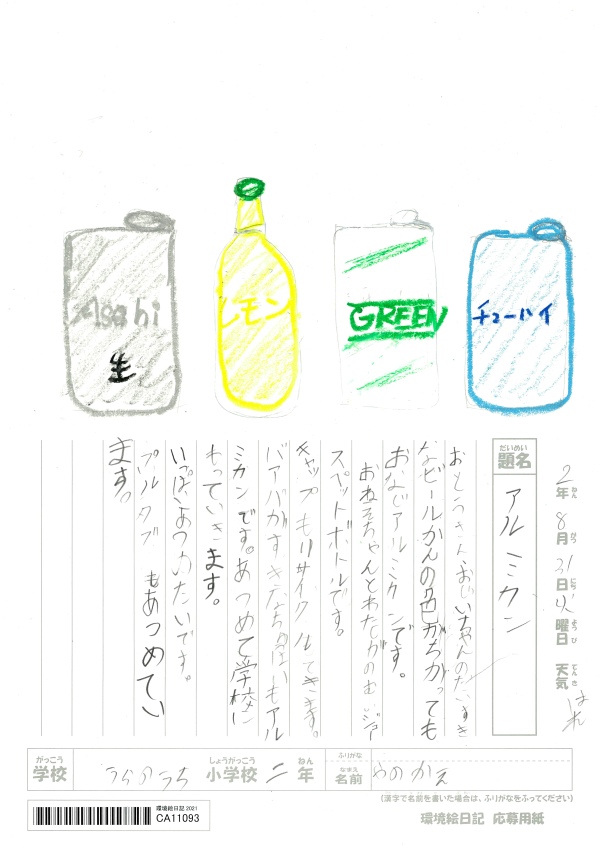 Asahi
生
レモン
GREEN
チューハイ
だいめい
題名
アルミカン
2年 8月 31日 火曜日 天気 はれ
ねん がつ にち ようび てんき
おとうさんおじいちゃんのだいすき
なビールかんの色がちがっても
おなじアルミカンです。
おねえちゃんとわたしがのむジュー
スペットボトルです。
キャップもリサイクルできます。
バアバがすきなちゅうはいもアル
ミカンです。あつめて学校に
もっていきます。
いっぱいあつめたいです。
プルタブもあつめてい
ます。
がっこう
学校
しょうがっこう
小学校
ねん
二年
ふりがな
なまえ
名前
(漢字で名前を書いた場合は、ふりがなをふってください)
環境絵日記 2021
CA11093
環境絵日記 応募用紙